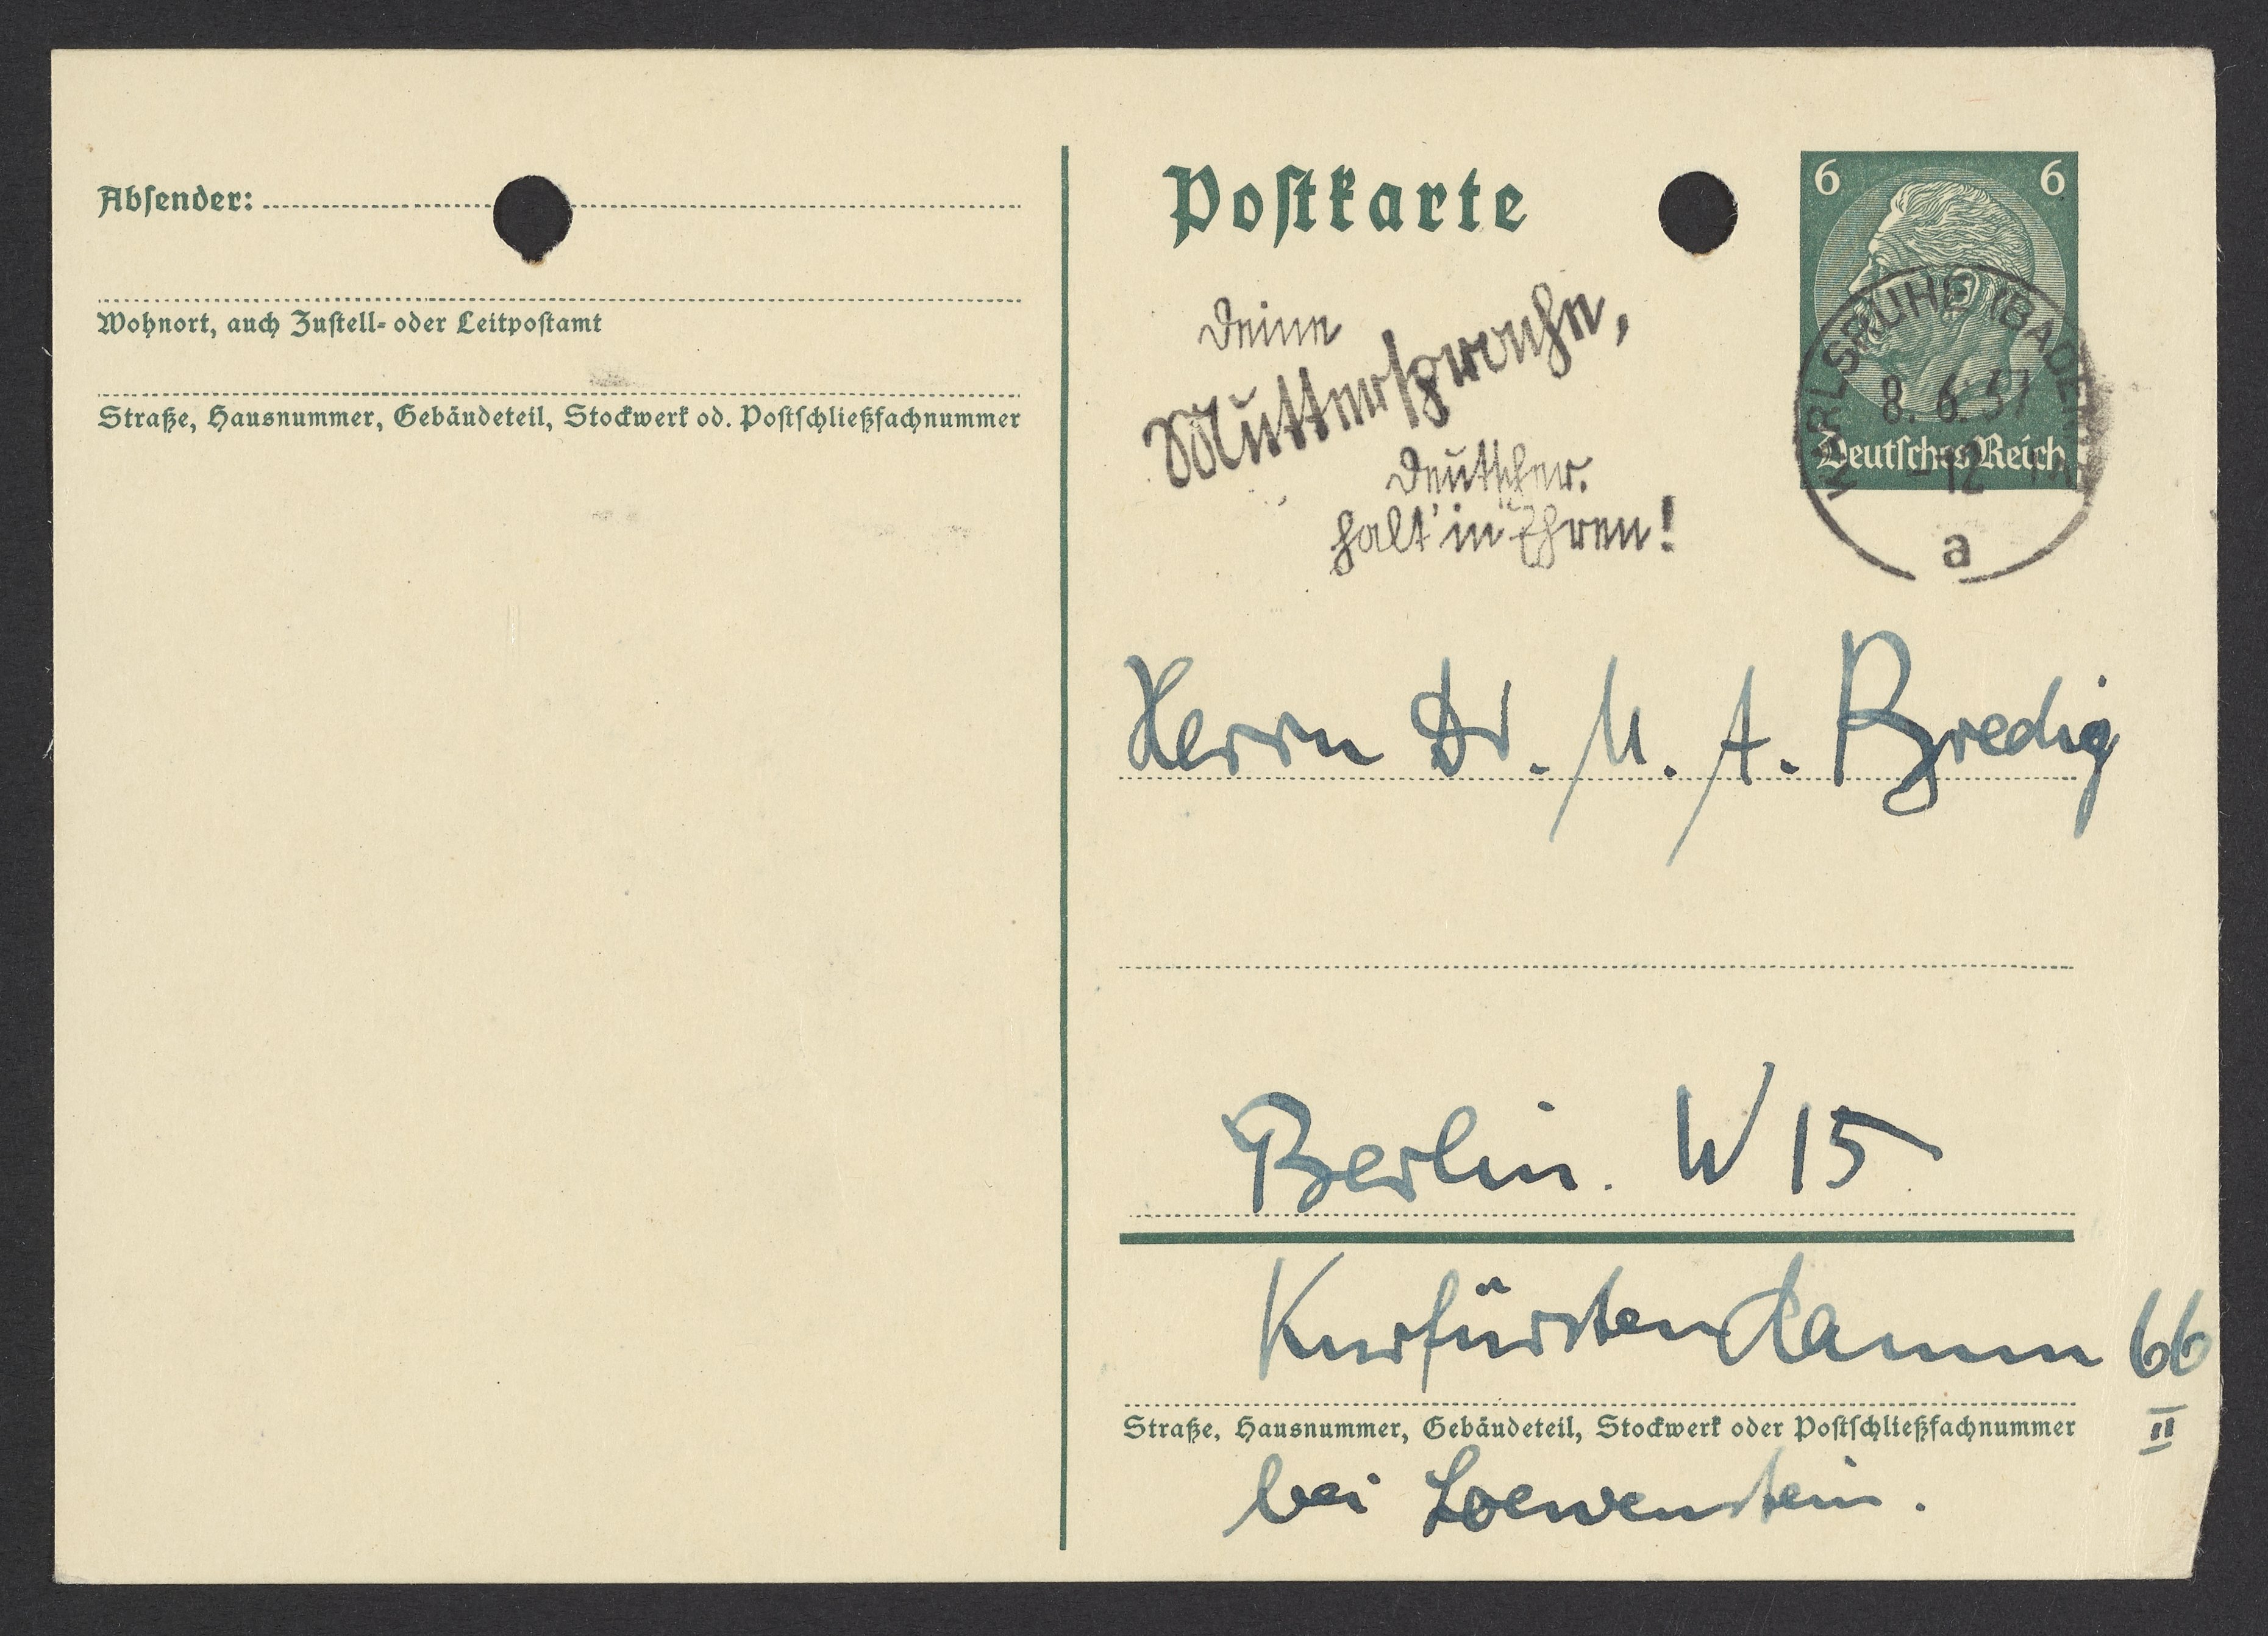 Absender:
Wohnort, auch Zustell- oder Leitpostamt
Straße, Hausnummer, Gebäudeteil, Stockwerk od. Postschließfachnummer
Postkarte
6 6
Deutsches Reich
KARLSRUHE (BADEN)
8. 6. 37
12
a
Deine
Muttersprache,
Deutscher.
halt' in Ehren!
Herrn Dr. M. A. Bredig
Berlin. W 15
Kurfürstendamm 66
II
Straße, Hausnummer, Gebäudeteil, Stockwerk oder Postschließfachnummer
bei Loewenstein.